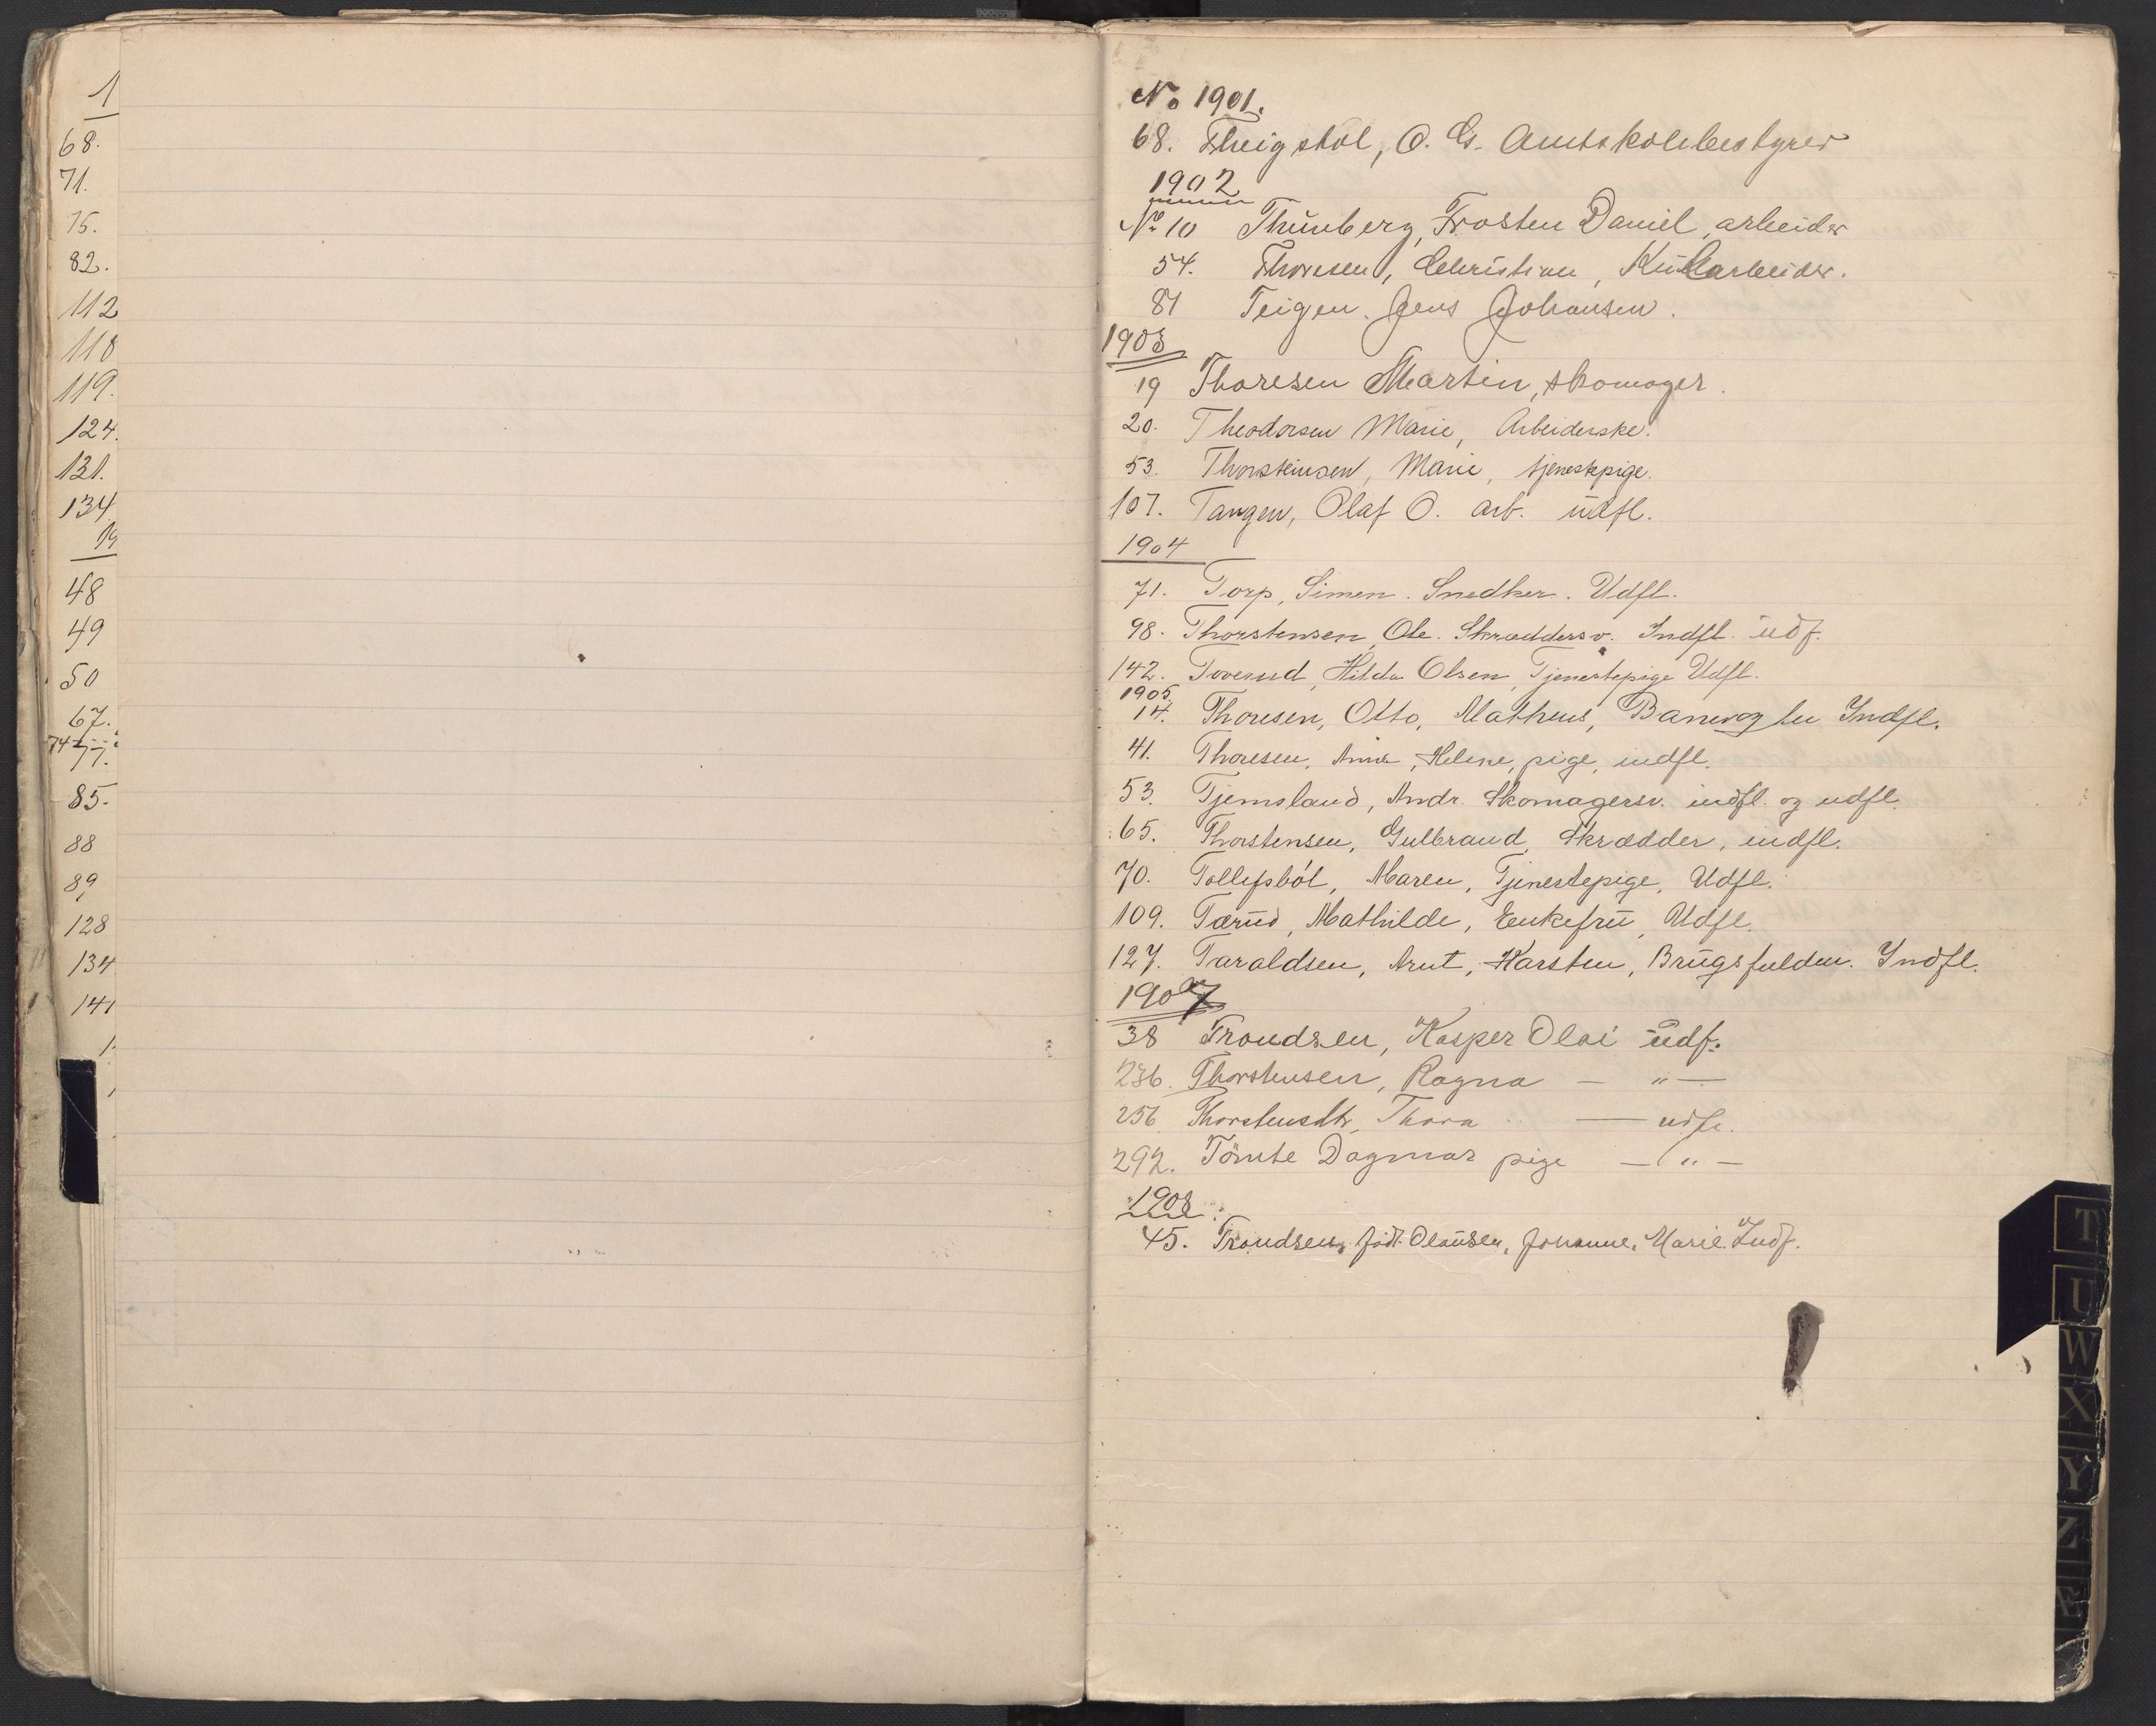 1
68.
71.
75.
82.
112
118
119.
124.
131.
134
19
48
49
50
67.
74
77.
85.
88
89
128
134
141
No 1901.
68. Theigstol, O. G. Amtskolebestyrer
1902
No 10 Thunberg, Frosten Daniel, arbeider
54. Thoresen, Christian, Kularbeider.
81 Teigen. Jens Johansen.
1903
19 Thoresen Martin, skomager.
20. Theodorsen Marie, Arbeiderske.
53. Thorsteinsen, Marie, tjenestepige.
107. Tangen, Olaf O. arb. udfl.
1904
71. Torp, Simen. Snedker. Udfl.
98. Thorstensen, Ole. Skrædersv. Indfl. udf.
142. Toverud, Hilda Olsen, Tjenestepige Udfl.
1905.
14. Thoresen, Otto, Matheus, Banevogter Indfl.
41. Thoresen, Anna, Helene, pige, indfl.
53. Tjemsland, Andr. Skomagersv. indfl. og udfl.
65. Thorstensen, Gulbrand, Skrædder, indfl.
70. Tollefsböl, Maren, Tjenestepige, Udfl.
109. Tærud, Mathilde, Enkefru, Udfl.
127. Taraldsen, Arnt, Karsten, Brugsfuldm. Indfl.
1907
38 Trondsen, Kasper Olai udf.
236. Thorstensen, Ragna — " —
256. Thorstensdtr, Thora — udfl.
292. Tömte Dagmar pige — " —
1908
45. Trondsen, födt Olausen, Johanne. Marie Indf.
T
U
W
X
Y
Z